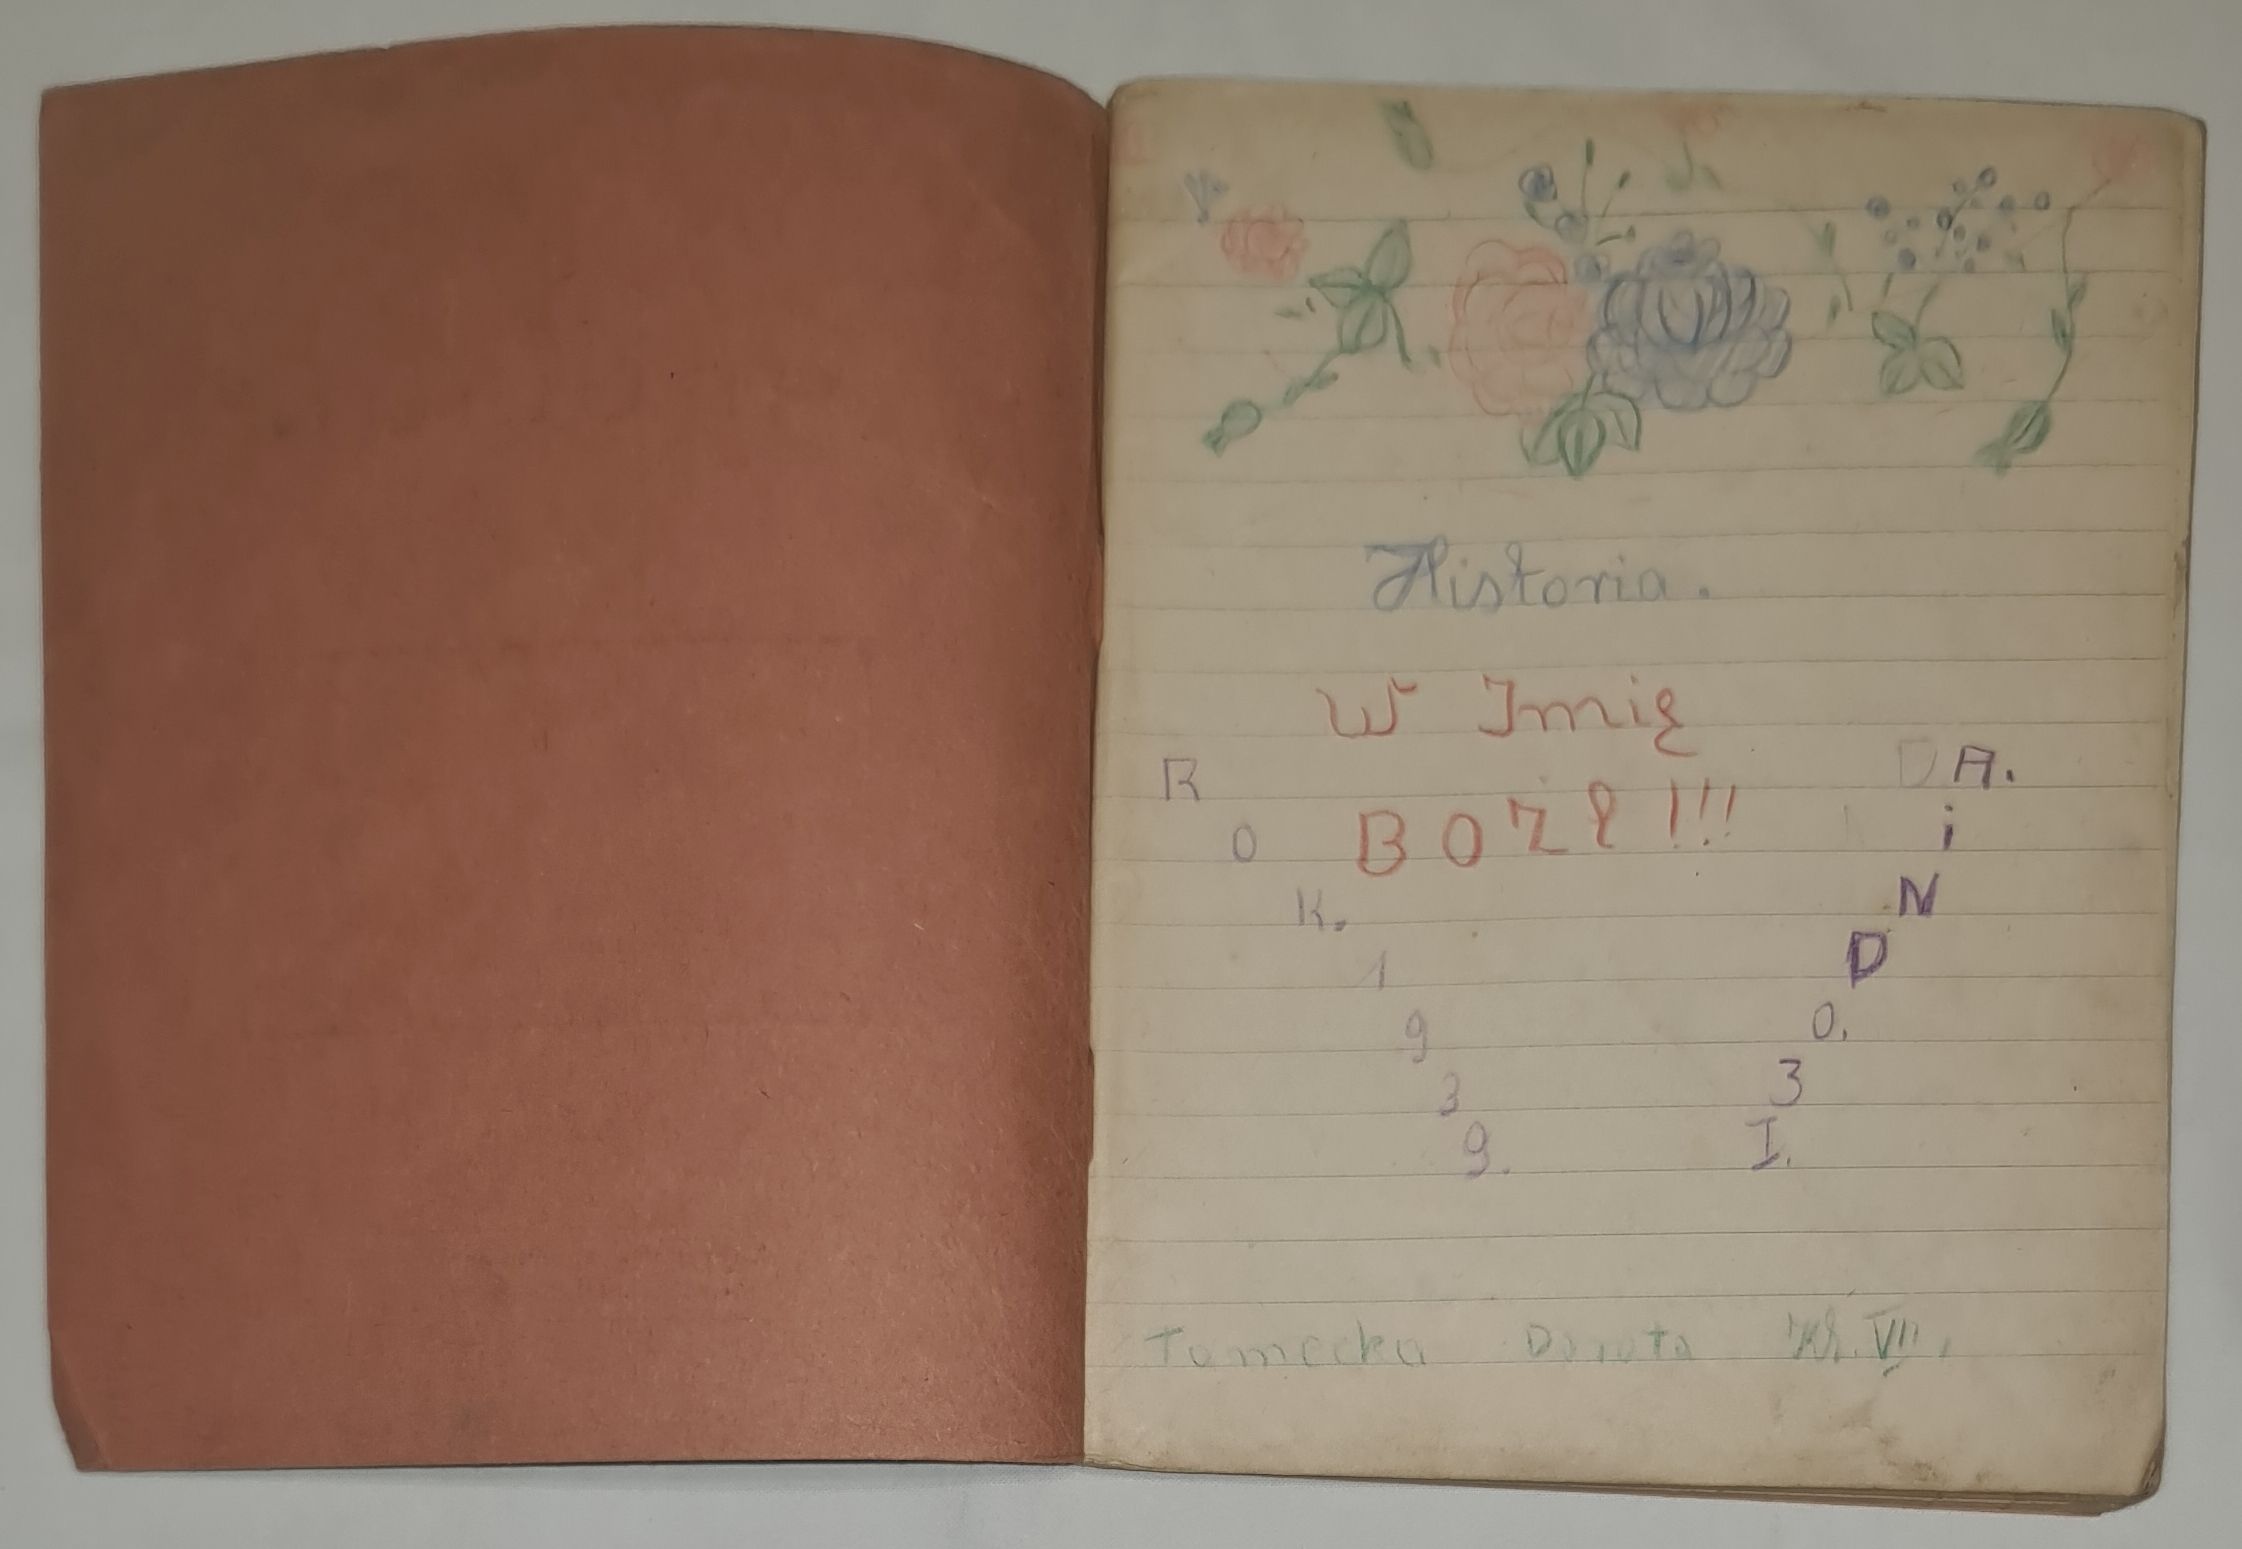 Historia.
W Imię
BOŻE !!!
R O K. 1 9 3 9.
D N i A. O. 3 I.
Tomecka Dorota Kl. VII.